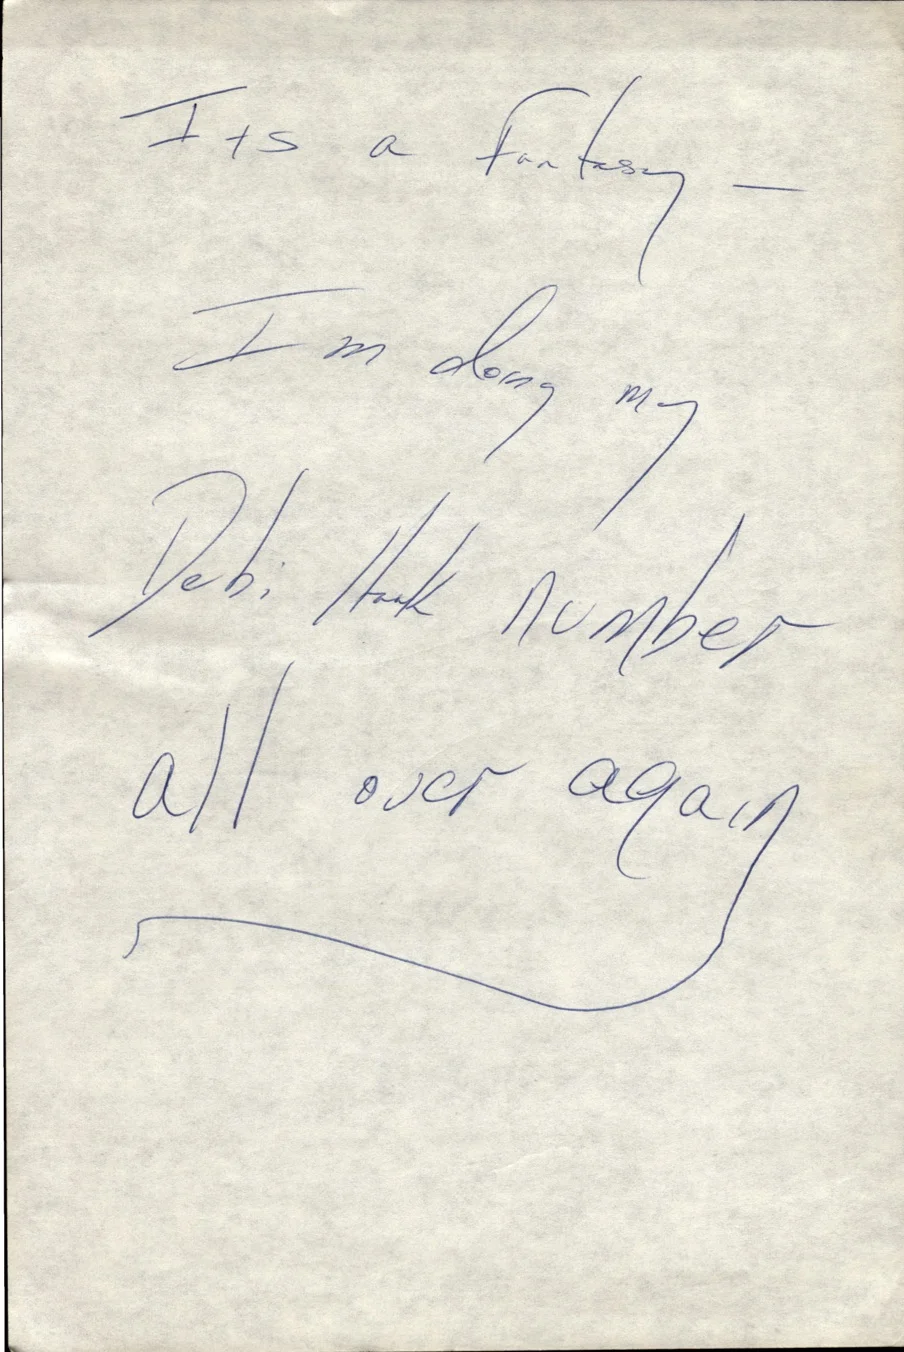 Its a Fantasy —
I'm doing my
Debi Hook number
all over again